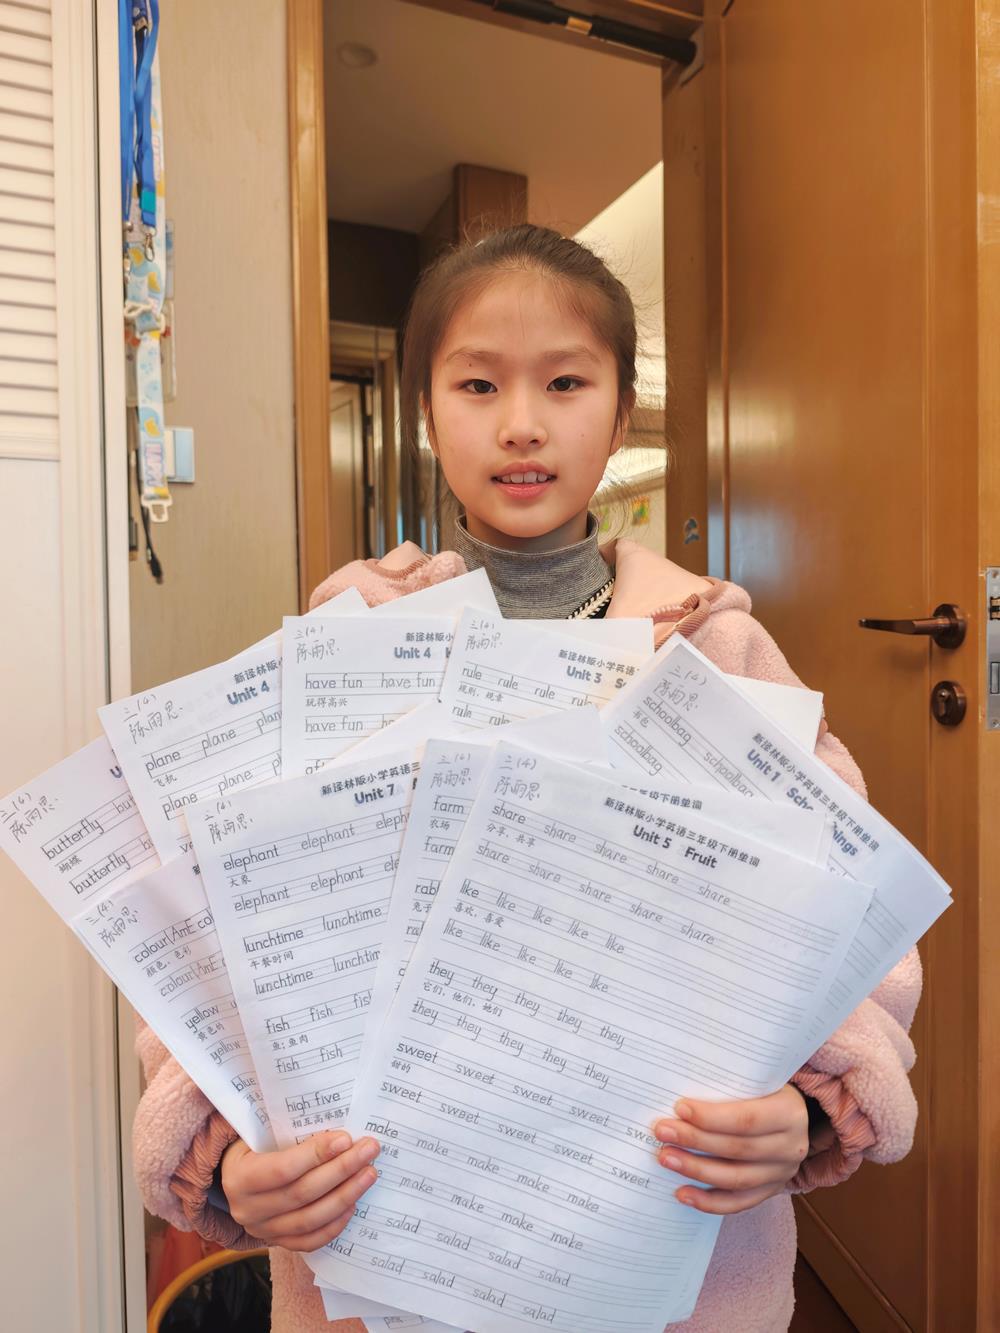 三(4)
陈雨思
butterfly
蝴蝶
butterfly
三(4)
陈雨思
新译林版小
Unit 4
plane plane
飞机
plane plane
三(4)
陈雨思
新译林版小
Unit 4
have fun have fun
玩得高兴
have fun
三(4)
陈雨思
新译林版小学英语
Unit 3
rule rule rule
规则，规章
rule
三(4)
陈雨思
新译林版小学英语三年级下册单词
Unit 1
schoolbag schoolbag
书包
schoolbag
三(4)
陈雨思
colour(AmE
颜色，色彩
colour(AmE
yellow
黄色的
yellow
blue
(4)
陈雨思
新译林版小学英语三
Unit 7
elephant elephant
大象
elephant elephant
lunchtime lunchtime
午餐时间
lunchtime
fish fish
鱼；鱼肉
fish fish
high five
三(4)
陈雨思
farm
农场
farm
三(4)
陈雨思
新译林版小学英语三年级下册单词
Unit 5 Fruit
share share share share share
分享，共享
share share share share share
like like like like like
喜欢，喜爱
like like like like like
they they they they they
它们，他们，她们
they they they they they
sweet sweet sweet sweet
甜的
sweet sweet sweet sweet sweet
make make make make make
制造
make make make make
salad salad salad
沙拉
salad salad salad